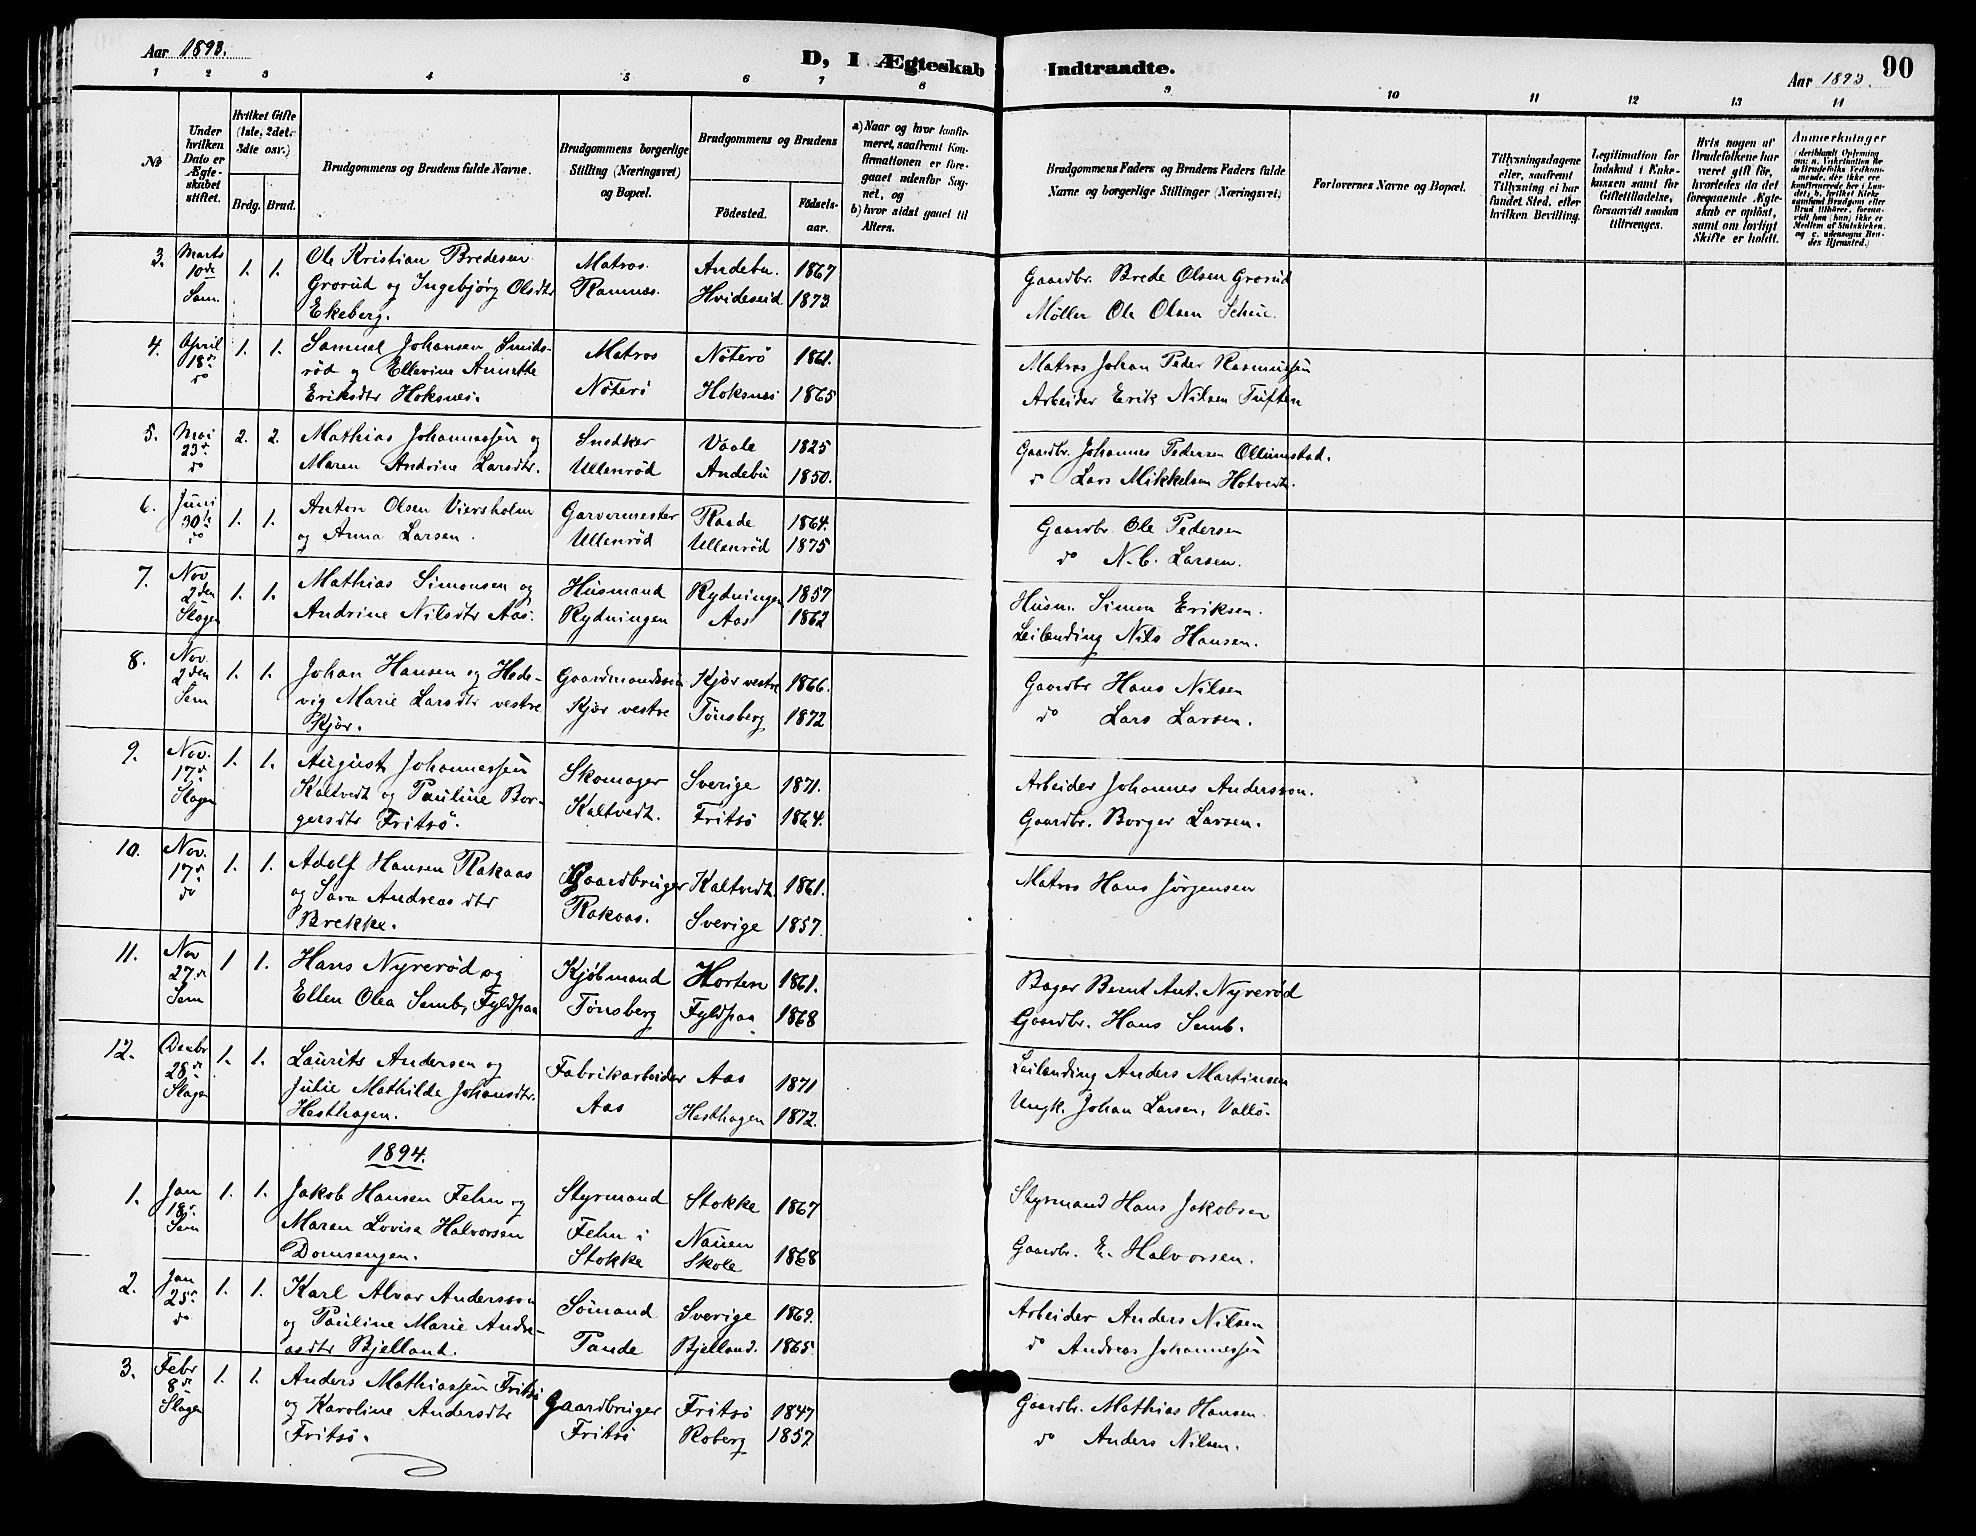 Aar 1893.
D, I Ægteskab Indtraadte.
Aar 1893.
90
1 2 3 4 5 6 7 8 9 10 11 12 13 14
No
Under hvilken Dato er Ægteskabet stiftet.
Hvilket Gifte (1ste, 2det, 3die osv.)
Brdg. Brud.
Brudgommens og Brudens fulde Navne.
Brudgommens borgerlige Stilling (Næringsvei) og Bopæl.
Brudgommens og Brudens
Födested.
Födselsaar.
a) Naar og hvor konfirmeret, saafremt Konfirmationen er foregaaet udenfor Sognet, og
b) hvor sidst gaaet til Alters.
Brudgommens Faders og Brudens Faders fulde Navne og borgerlige Stillinger (Næringsvei.)
Forlovernes Navne og Bopæl.
Tillysningsdagene eller, saafremt Tillysning ei har fundet Sted, efter hvilken Bevilling.
Legitimation for Indskud i Enkekassen samt for Giftetilladelse, forsaavidt saadan tiltrænges.
Hvis nogen af Brudefolkene har været gift för, hvorledes da det foregaaende Ægteskab er oplöst, samt om lovligt Skifte er holdt.
Anmærkninger
3. Marts 10de Sem. 1. 1.
Ole Kristian Bredesen
Grorud og Ingebjørg Olsdtr
Ekeberg.
Matros.
Ramnes.
Andebu. 1867
Hvideseid 1873.
Gaardbr. Brede Olsen Grorud
Møller Ole Olsen
4. April 18de do 1. 1.
Samuel Johansen Smids-
rød og Ellevine Annette
Eriksdtr Hoksnes.
Matros
Nøterö
Nöterö 1861.
Hoksnes 1865
Matros Johan Peder Rasmussen
Arbeider Erik Nilsen Tuften
5. Mai 23de do 2. 2.
Mathias Johannessen og
Maren Andrine Larsdtr.
Snedker
Ullenröd
Vaale 1825
Andebu 1850.
Gaardbr. Johannes Pedersen Ollumstad.
do Lars Mikkelsen Hotvedt.
6. Juni 30te do 1. 1.
Anton Olsen Viersholm
og Anna Larsen.
Garvermester
Ullenröd
Raade 1864.
Ullenröd 1875
Gaardbr. Ole Pedersen
do N. C. Larsen.
7. Nov 2den Slagen 1. 1.
Mathias Simonsen og
Andrine Nilsdtr Aas.
Husmand
Rydningen
Rydningen 1857
Aas 1862
Husm. Simon Eriksen.
Leilending Nils Hansen.
8. Nov 2den Sem 1. 1.
Johan Hansen og Hed-
vig Marie Larsdtr vestre
Kjør.
Gaardmandssön
Kjør vestre
Kjør vestre 1866.
Tønsberg 1872
Gaardbr Hans Nilsen
do Lars Larsen.
9. Nov. 17de Slagen 1. 1.
August Johannessen
Kaltvedt og Pauline Bor-
gersdtr Fritsö.
Skomager
Kaltvedt.
Sverige 1871.
Fritsö 1864.
Arbeider Johannes Andersson.
Gaardbr. Borger Larsen.
10. Nov. 17de do 1. 1.
Adolf Hansen Rakaas
og Sara Andreasdtr
Brekke.
Gaardbruger
Rakaas.
Kaltvedt. 1861.
Sverige 1857.
Matros Hans Jørgensen
11. Nov 27de Sem 1 1.
Hans Nyrerød og
Ellen Olea Semb, Fyldpaa
Kjøbmand
Tönsberg
Horten 1861.
Fyldpaa 1868
Bager Bernt Ant. Nyrerød
Gaardbr. Hans Semb.
12. Decbr 28de Slagen 1. 1.
Laurits Andersen og
Julie Mathilde Johansdtr.
Hesthagen.
Fabrikarbeider
Aas
Aas 1871
Hesthagen 1872.
Leilending Anders Martinsen
Ungk. Johan Larsen, Vallö.
1894.
1. Jan 18de Sem 1. 1.
Jakob Hansen Fehn og
Maren Lovise Halvorsen
Domsengen.
Styrmand
Fehn i
Stokke
Stokke 1867
Nauen
Skole 1868
Styrmand Hans Jakobsen
Gaardbr. E. Halvorsen.
2. Jan 25de do 1. 1.
Karl Alvar Andersson
og Pauline Marie Andre-
asdtr Bjelland.
Sömand
Tande
Sverige 1869.
Bjelland. 1865.
Arbeider Anders Nilsen
do Andreas Johannessen
3. Febr 8de Slagen 1. 1.
Anders Mathiassen Fritsö
og Karoline Andersdtr
Fritsö.
Gaardbruger
Fritsö
Fritsö 1847
Roberg 1857
Gaardbr. Mathias Hansen.
do Anders Nilsen.